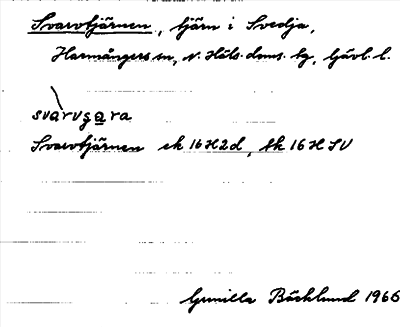 Svarvtjärnen, tjärn i Svedja,
Harmångers sn, N. Häls. doms. tg, Gävl. l.
svarvgara
Svarvtjärnen ek 16H2d, tk 16H SV
Gunilla Bäcklund 1966